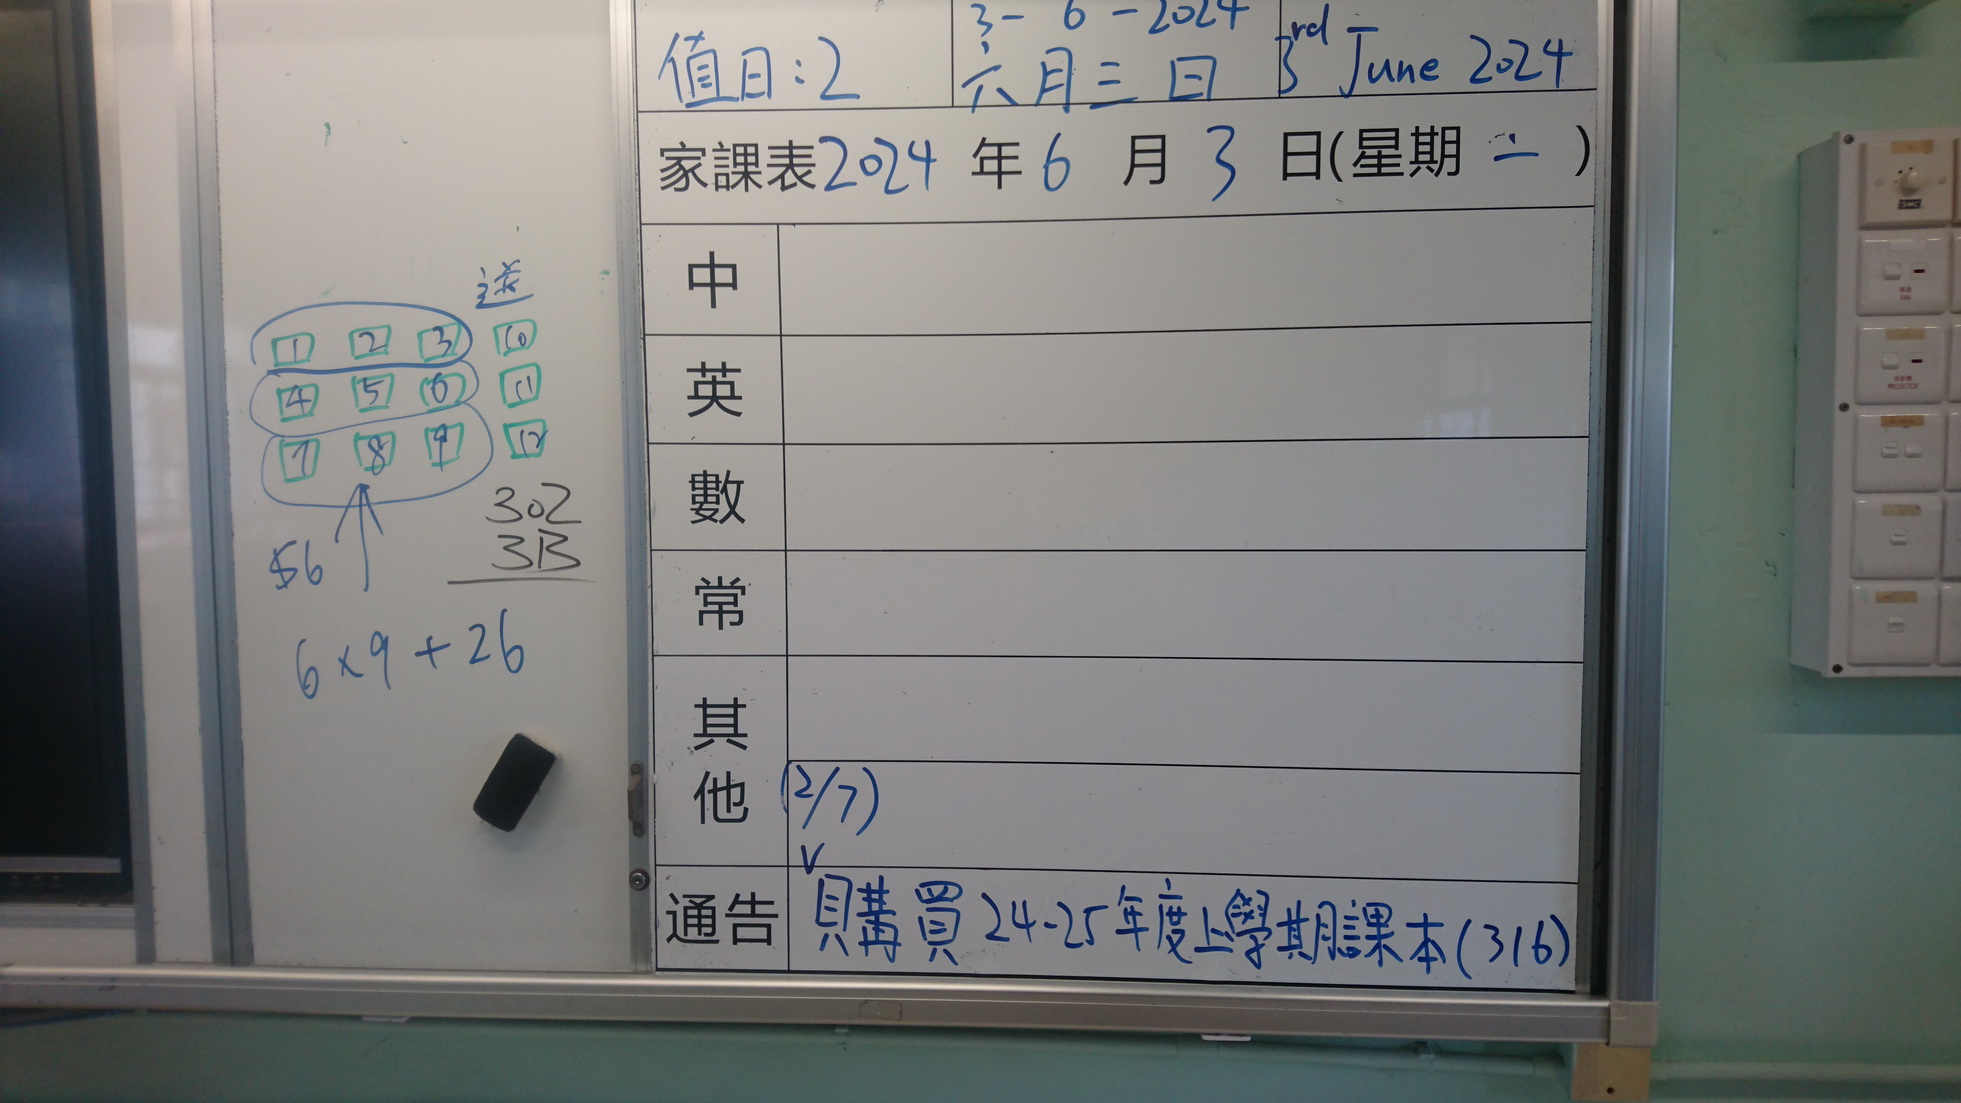 送
1 2 3 10
4 5 6 11
7 8 9 12
$6
302
3B
6×9+26
值日:2
3-6-2024
六月三日
3rd June 2024
家課表2024年6月3日(星期 )
中
英
數
常
其他
(2/7)
通告
購買24-25年度上學期課本(316)